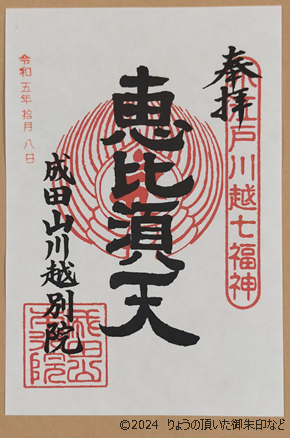 奉拝
小江戸川越七福神
恵比須天
成田山川越別院
令和五年拾月八日
©2024 りょうの頂いた御朱印など